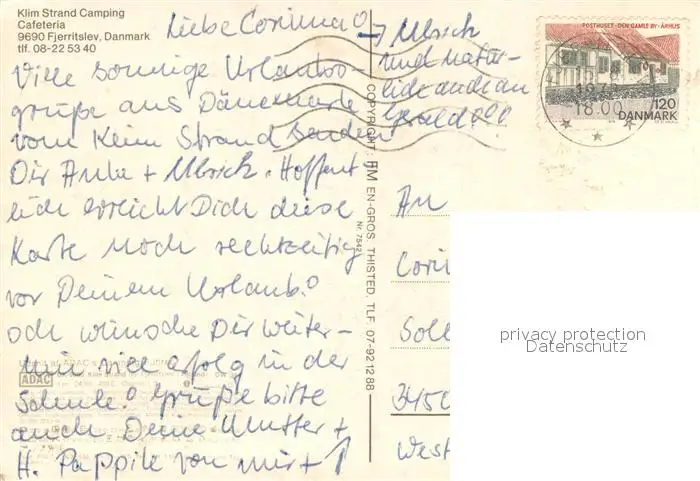 Klim Strand Camping
Cafeteria
9690 Fjerritslev, Danmark
tlf. 08-22 53 40
Liebe Corinna!
Viele sonnige Urlaubs-
grüße aus Dänemark
vom Klim Strand senden
Dir Anke + Ulrich. Hoffent-
lich erreicht Dich diese
Karte noch rechtzeitig
vor Deinem Urlaub!
Ich wünsche Dir weiter-
hin viel erfolg in der
Schule! Grüße bitte
auch Deine Mutter +
H. Pappile von mir +
→ Ulrich
und natür-
lich auch an
Gerald!!!
COPYRIGHT: HM EN-GROS. THISTED. TLF. 07-92 12 88
Nr. 7642
POSTHUSET · DEN GAMLE BY · ÅRHUS
18.00
120
DANMARK
An
Cori
Soll
3450
West
ADAC
privacy protection
Datenschutz